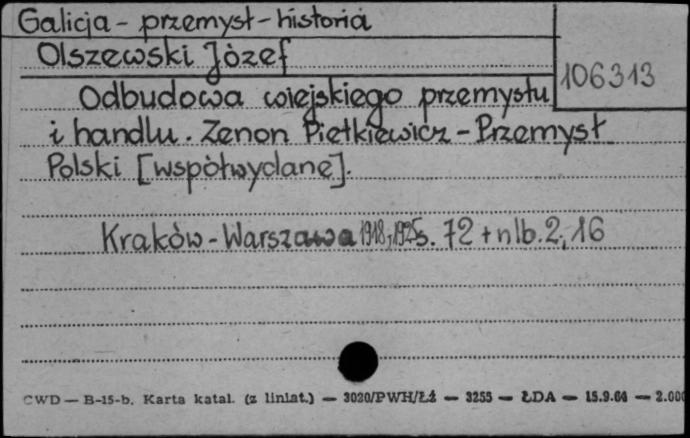 Galicja - przemysł - historia
Olszewski Józef
106313
Odbudowa wiejskiego przemysłu
i handlu. Zenon Pietkiewicz - Przemysł
Polski [współwydane].
Kraków - Warszawa 1918, 1925 s. 72 + nlb. 2, 16
CWD — B-15-b. Karta katal. (z liniat.) — 3020/PWH/Łź — 3255 — ŁDA — 15.9.64 — 2.000